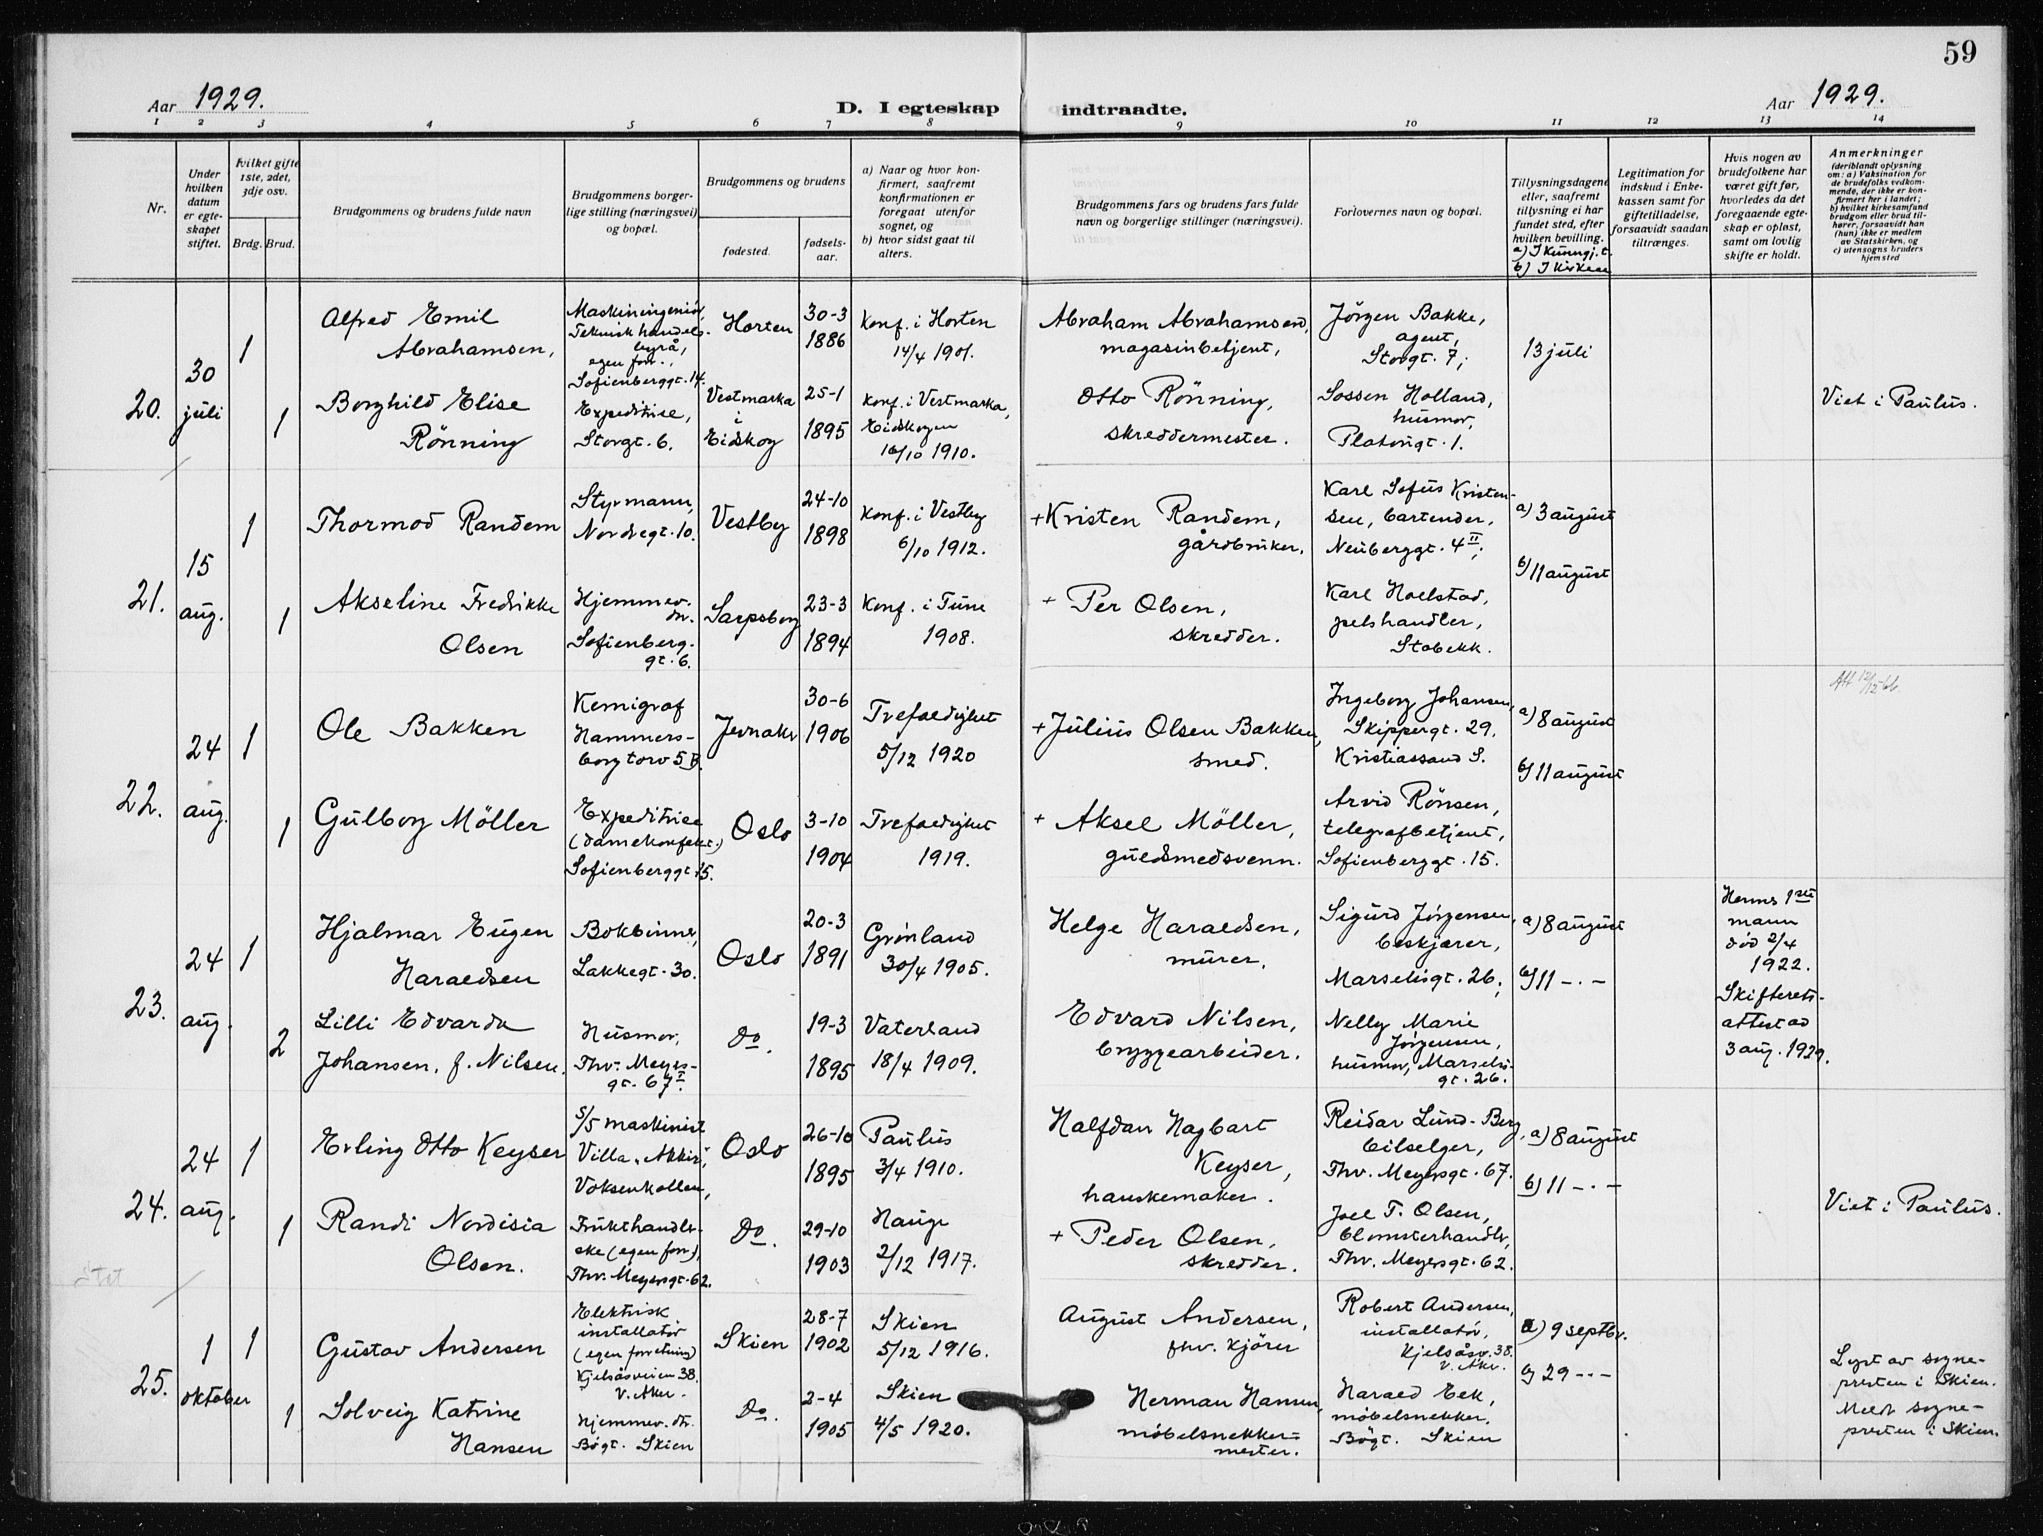 59
Aar 1929.
D. I egteskap indtraadte.
Aar 1929.
1 2 3 4 5 6 7 8 9 10 11 12 13 14
Nr.
Under
hvilken
datum
er egte-
skapet
stiftet.
hvilket gifte
1ste, 2det,
3dje osv.
Brdg. Brud.
Brudgommens og brudens fulde navn
Brudgommens borger-
lige stilling (næringsvei)
og bopæl.
Brudgommens og brudens
fødested.
fødsels-
aar.
a) Naar og hvor kon-
firmert, saafremt
konfirmationen er
foregaat utenfor
sognet, og
b) hvor sidst gaat til
alters.
Brudgommens fars og brudens fars fulde
navn og borgerlige stillinger (næringsvei).
Forlovernes navn og bopæl.
Tillysningsdagene
eller, saafremt
tillysning ei har
fundet sted, efter
hvilken bevilling.
a) I Kunngj.t.
b) I Kirken
Legitimation for
indskud i Enke-
kassen samt for
giftetilladelse,
forsaavidt saadan
tiltrænges.
Hvis nogen av
brudefolkene har
været gift før,
hvorledes da det
foregaaende egte-
skap er opløst,
samt om lovlig
skifte er holdt.
Anmerkninger
(deriblandt oplysning
om: a) Vaksination for
de brudefolks vedkom-
mende, der ikke er kon-
firmert her i landet;
b) hvilket kirkesamfund
brudgom eller brud til-
hører, forsaavidt han
(hun) ikke er medlem
av Statskirken, og
c) utensogns bruders
hjemsted
20.
30
juli
1
Alfred Emil
Abrahamsen,
Maskiningeniør,
Teknisk handels-
byrå,
egen forr.,
Sofienberggt. 14.
Horten
30-3
1886
Konf. i Horten
14/4 1901.
Abraham Abrahamsen,
magasinbetjent,
Jörgen Bakke,
agent,
Storgt. 7;
13 juli
1
Borghild Elise
Rønning
Expeditrise,
Storgt. 6.
Vestmarka
i
Eidskog
25-1
1895
Konf. i Vestmarka,
Eidskogen
16/10 1910.
Otto Rønning,
skreddermester.
Sossen Holland,
husmor,
Platougt. 1.
Viet i Paulus.
21.
15
aug.
1
Thormod Randem
Styrmann,
Nordregt. 10.
Vestby
24-10
1898
Konf. i Vestby
6/10 1912.
+ Kristen Randem,
gårdbruker.
Karl Sofus Kristen-
sen, bartender,
Neuberggt. 4 II;
a) 3 august
b) 11 august
1
Akseline Fredrikke
Olsen
Hjemmev.
dtr.
Sofienberg-
gt. 6.
Sarpsborg
23-3
1894
Konf. i Tune
1908.
+ Per Olsen,
skredder.
Karl Hoelstad,
pelshandler,
Stabekk.
22.
24
aug.
1
Ole Bakken
Kemigraf
Hammers-
borg torv 5 B.
Jevnaker
30-6
1906
Trefoldighet
5/12 1920
+ Julius Olsen Bakken,
smed.
Ingeborg Johansen,
Skippergt. 29.
Kristiassand S.
a) 8 august
b) 11 august
1
Gulborg Möller
Expeditrise
(damekonfekt.)
Sofienberggt. 15.
Oslo
3-10
1904
Trefoldighet
1919.
+ Aksel Möller,
gullsmedsvenn.
Arvid Rönsen,
telegrafbetjent,
Sofienberggt. 15.
23.
24
aug.
1
Hjalmar Eugen
Haraldsen
Bokbinner,
Lakkegt. 30.
Oslo
20-3
1891
Grönland
30/4 1905.
Helge Haraldsen,
murer,
Sigurd Jørgensen,
beskjærer,
Marselisgt. 26;
a) 8 august
b) 11 - . -
Hennes 1ste
mann
død 2/4
1922.
Skifterets-
attest av
3 aug. 1929.
2
Lilli Edvarda
Johansen, f. Nilsen.
Husmor,
Thv. Meyers-
gt. 67 I.
Do.
19-3
1895
Vaterland
18/4 1909.
Edvard Nilsen,
bryggearbeider.
Nelly Marie
Jørgensen,
husmor, Marselis-
gt. 26.
24.
24
aug.
1
Erling Otto Keyser
S/S maskinist
Villa „Akkir",
Voksenkollen,
Oslo
26-10
1895
Paulus
3/4 1910.
Halfdan Hagbart
Keyser,
hanskemaker.
Reidar Lund-Berg,
bilselger,
Thv. Meyersgt. 67.
a) 8 august
b) 11 - . -
1
Randi Nordisia
Olsen.
Frukthandler-
ske (egen forr),
Thv. Meyersgt. 62.
Do.
29-10
1903
Hauge
2/12 1917.
+ Peder Olsen,
skredder.
Joel T. Olsen,
blomsterhandler,
Thv. Meyersgt. 62.
Viet i Paulus.
25.
1
oktober
1
Gustav Andersen
Elektrisk
installatör
(egen forretning)
Kjelsåsveien 38.
V. Aker.
Skien
28-7
1902
Skien
5/12 1916.
August Andersen,
fhv. kjörer
Robert Andersen,
installatör,
Kjelsåsv. 38.
V. Aker.
a) 9 septbr.
b) 29 - - -
1
Solveig Katrine
Hansen
Hjemmev. dtr.
Bögt. Skien
Do.
2-4
1905
Skien
4/5 1920.
Herman Hansen,
möbelsnekker-
mester.
Harald Eek,
möbelsnekker,
Bögt. Skien
Lyst av sogne-
presten i Skien.
Meldt sogne-
presten i Skien.